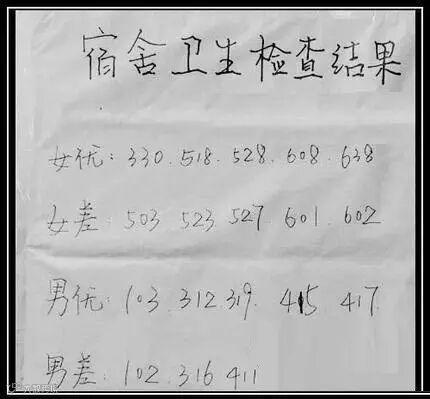 宿舍卫生检查结果
女优：330.518.528.608.638
女差：503 523.527 601 602
男优：103.312.319. 415 417
男差：102.316 411